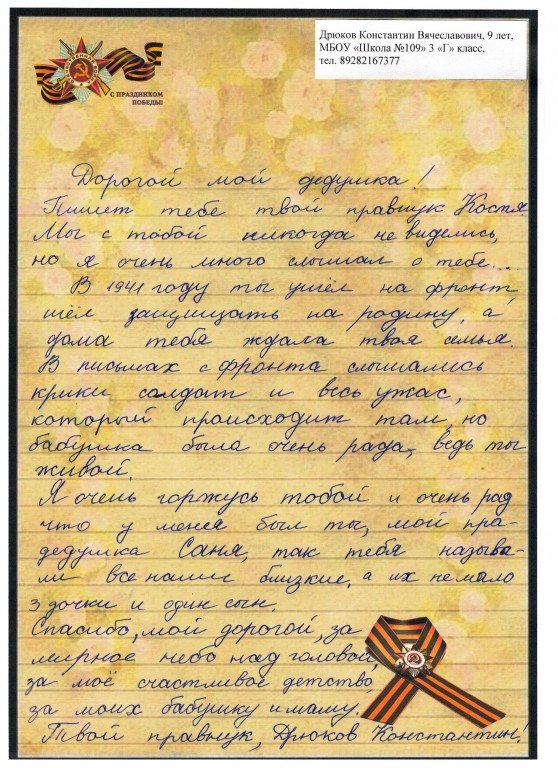 Дрюков Константин Вячеславович, 9 лет,
МБОУ «Школа №109» 3 «Г» класс,
тел. 89282167377
С ПРАЗДНИКОМ
ПОБЕДЫ!
Дорогой мой дедушка!
Пишет тебе твой правнук Костя.
Мы с тобой никогда не виделись,
но я очень много слышал о тебе...
В 1941 году ты ушёл на фронт,
шёл защищать на родину, а
дома тебя ждала твоя семья.
В письмах с фронта слышались
крики солдат и весь ужас,
который происходит там, но
бабушка была очень рада, ведь ты
живой.
Я очень горжусь тобой и очень рад
что у меня был ты, мой пра-
дедушка Саня, так тебя называ-
ли все наши близкие, а их не мало
3 дочки и один сын.
Спасибо, мой дорогой, за
мирное небо над головой,
за моё счастливое детство,
за моих бабушку и маму.
Твой правнук, Дрюков Константин!